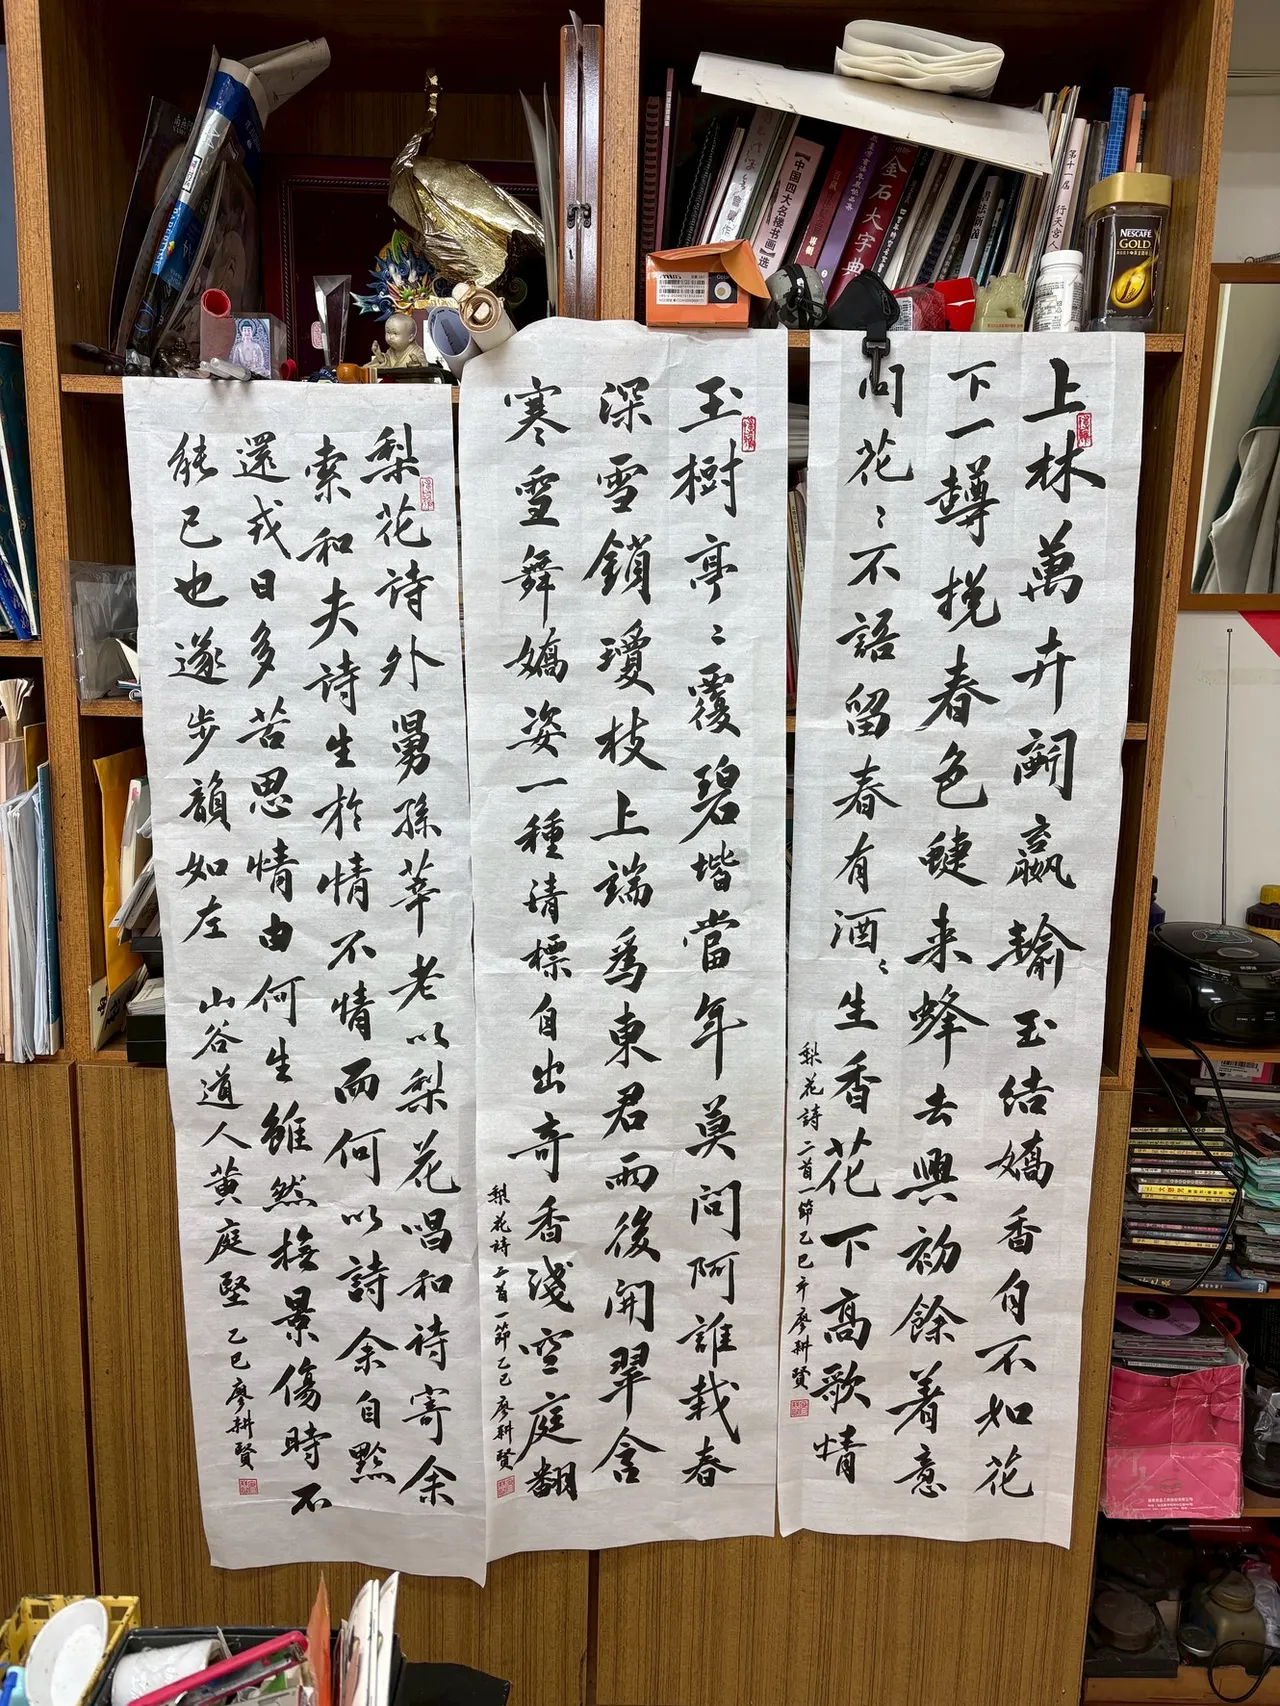 上林萬卉鬭嬴輸玉結嬌香自不如花
下一罇挽春色蜨来蜂去興初餘着意
問花〻不語留春有酒〻生香花下高歌情
梨花詩二首一節乙巳廖耕賢
玉樹亭〻覆碧堦當年莫問阿誰栽春
深雪鎖瓊枝上端為東君雨後開翠含
寒雪舞嬌姿一種清標自出奇香淺空庭翻
梨花詩二首一節乙巳廖耕賢
梨花詩外舅孫莘老以梨花唱和詩寄余
索和夫詩生於情不情而何以詩余自黔
還戎日多苦思情由何生雖然撫景傷時不
能已也遂步韻如左 山谷道人黄庭堅 乙巳廖耕賢
【中国四大名楼书画】选
金石大字典
第十一屆 行天宮人
NESCAFÉ
GOLD